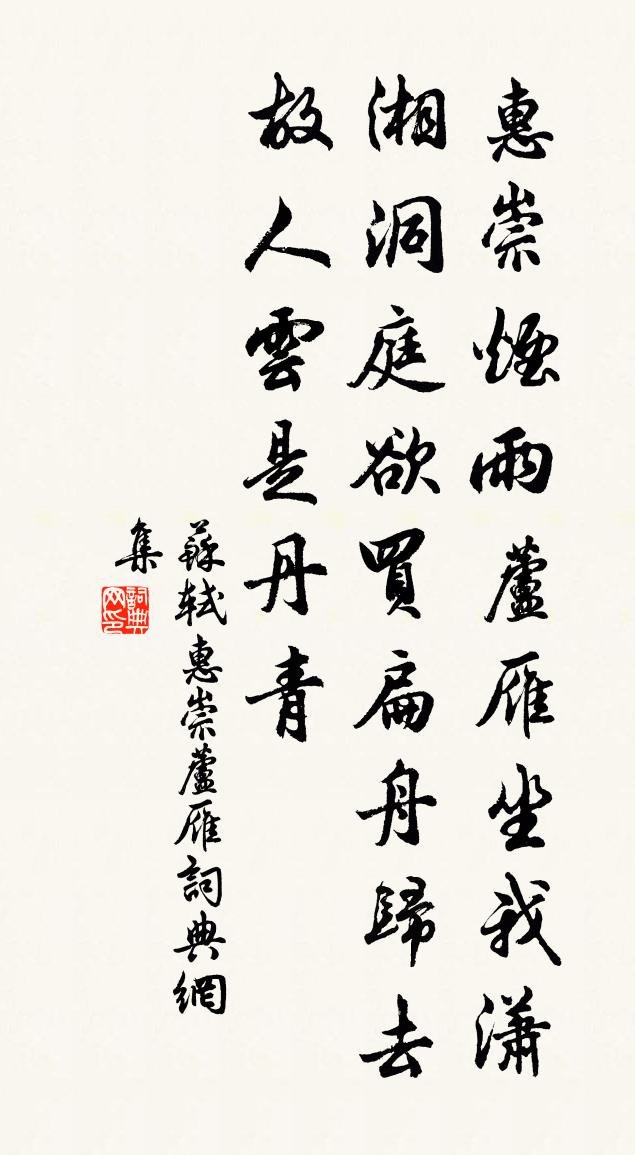 惠崇煙雨蘆雁坐我瀟
湘洞庭欲買扁舟歸去
故人雲是丹青
蘇軾惠崇蘆雁詞典網
集
詞典
网印